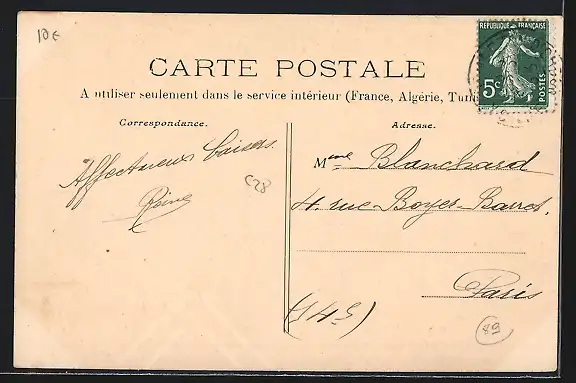 10€
RÉPUBLIQUE FRANÇAISE
5c
POSTES
CARTE POSTALE
A utiliser seulement dans le service intérieur (France, Algérie, Tuni
Correspondance.
Adresse.
Affectueux baisers.
Reine
C28
Mme Blanchard
4. rue Boyer-Barret.
Paris
(14e)
89